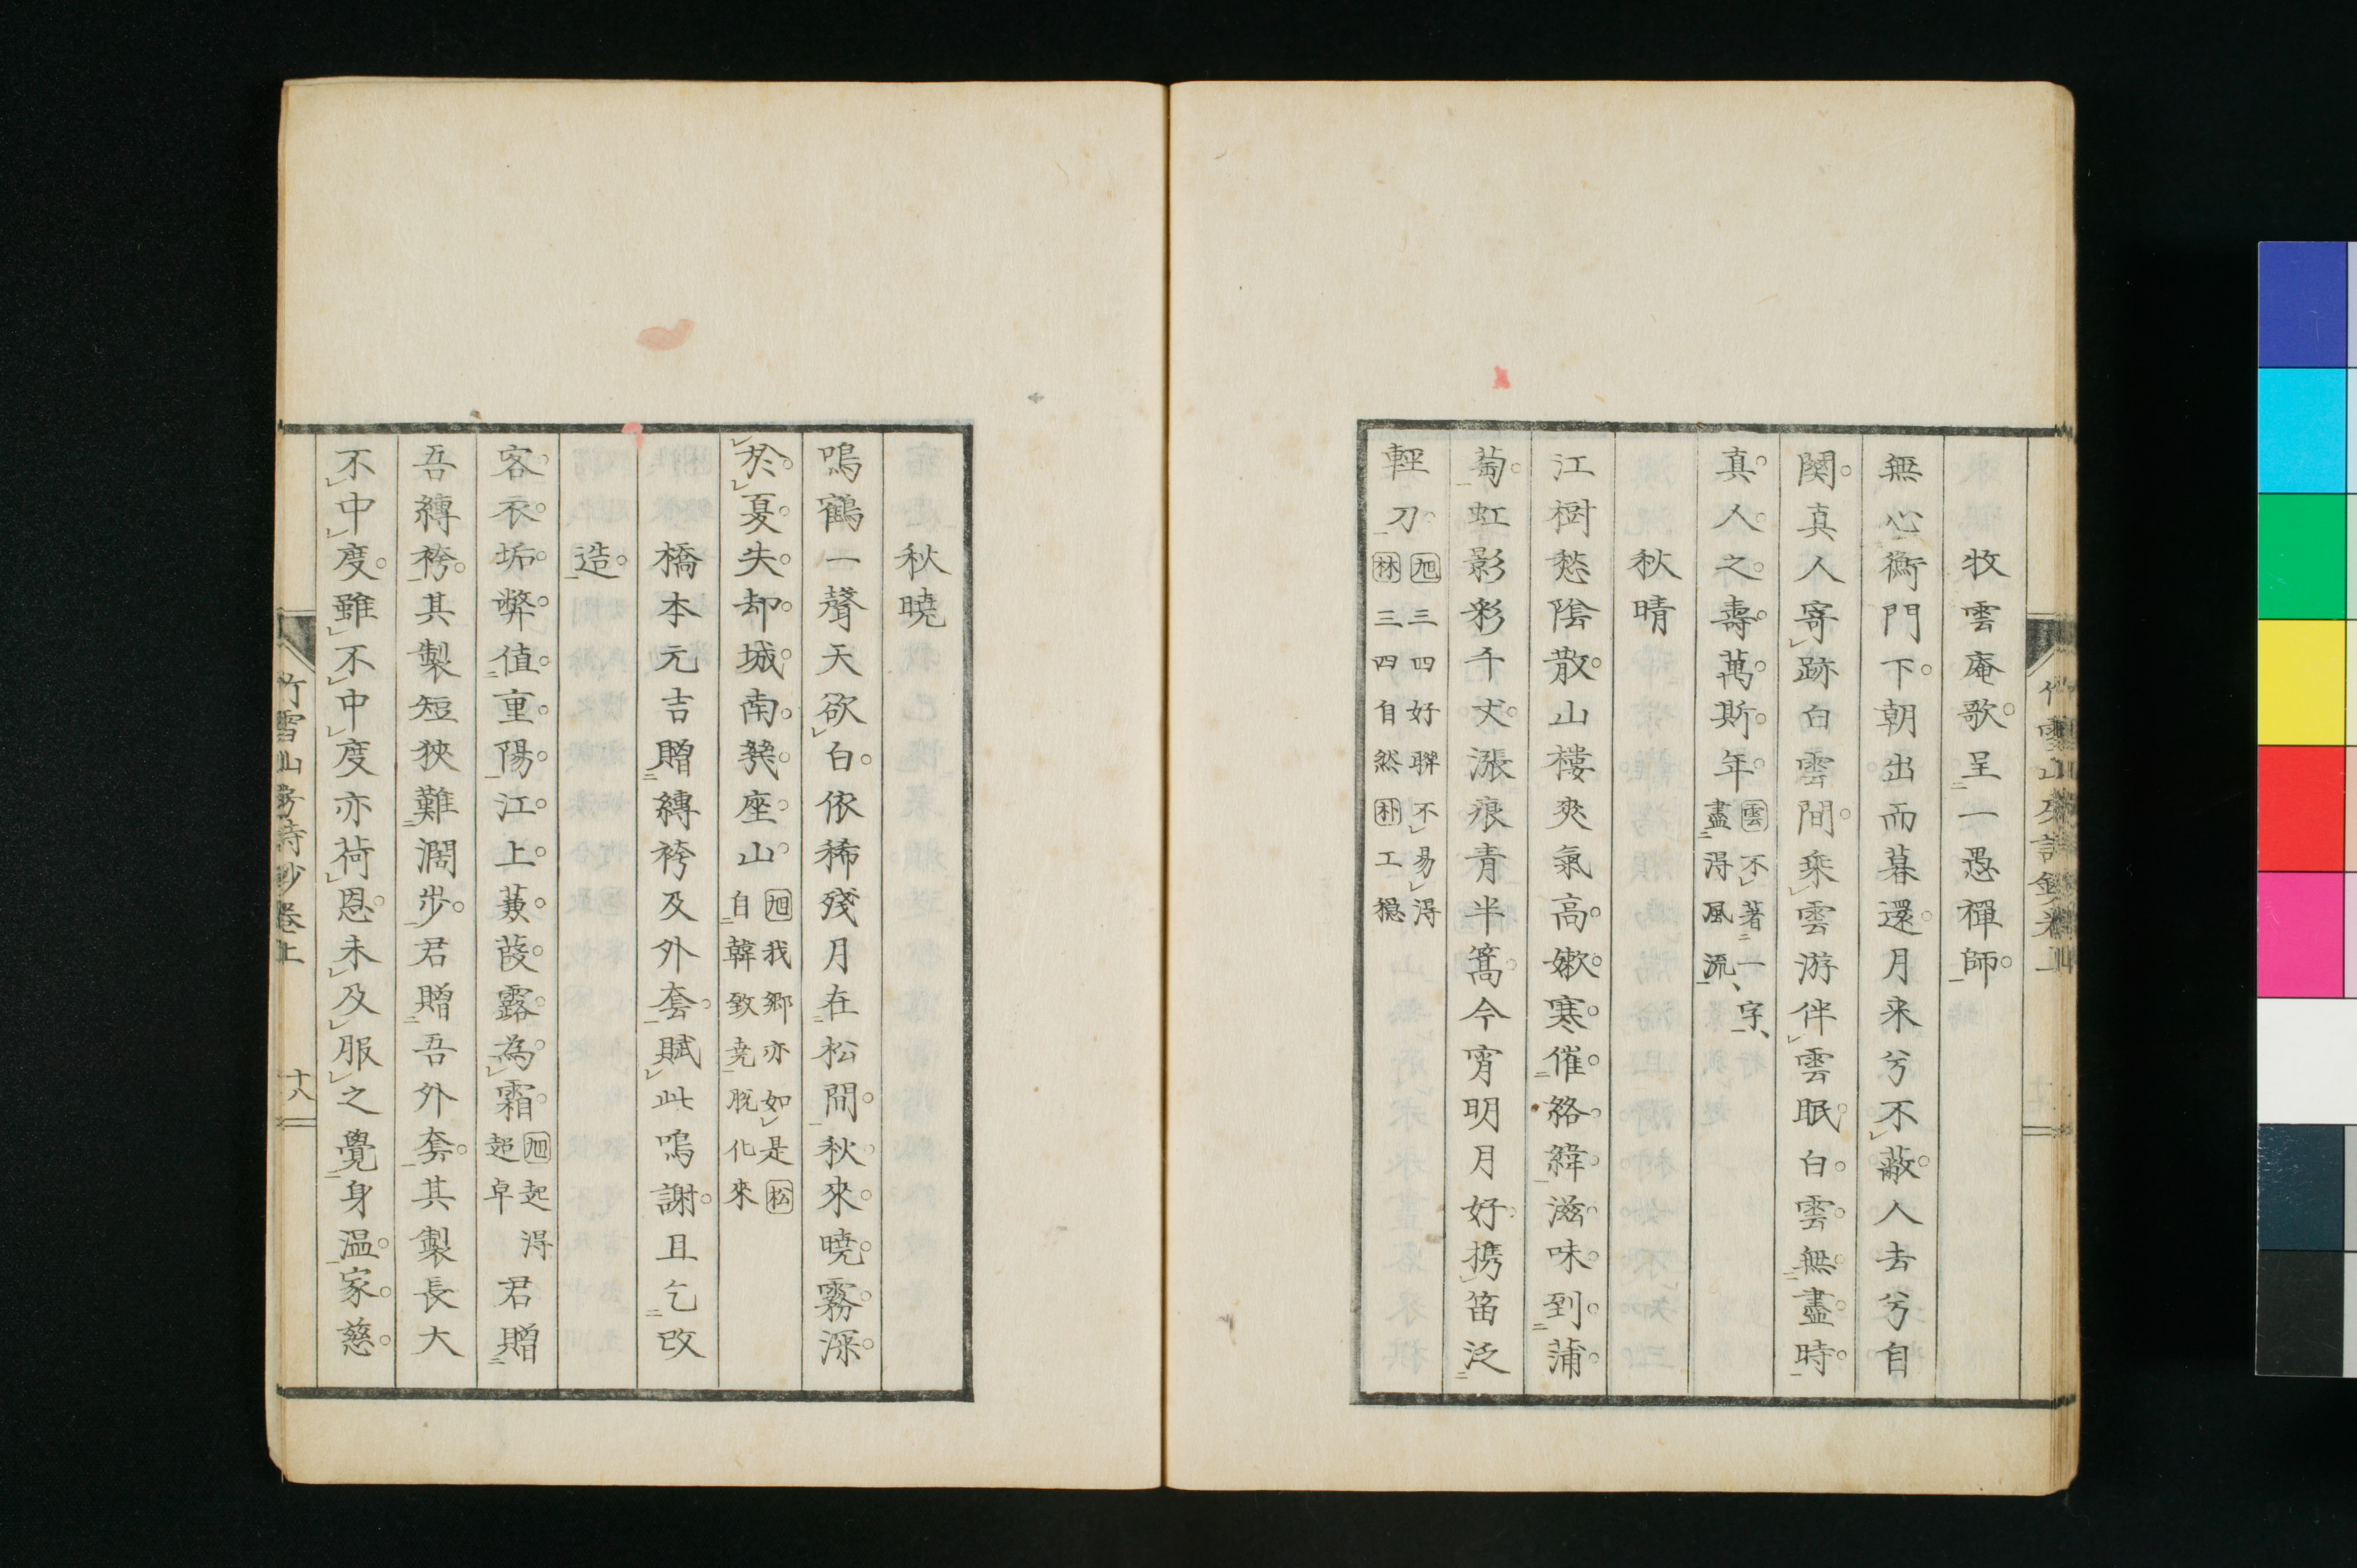 牧雲庵歌呈一愚禪師
無心衡門下朝出而暮還月来兮不蔽人去兮自
関真人寄跡白雲間乘雲游伴雲眠白雲無盡時
真人之壽萬斯年雲不著一字
盡得風流
秋晴
江樹愁陰散山樓爽氣高嫩寒催絡緯滋味到蒲
萄虹影彩千丈漲痕青半篙今宵明月好携笛泛
輕刀旭三四好聯不易得
林三四自然朴工穏
秋曉
鳴鶴一聲天欲白依稀殘月在松間秋來曉霧深
於夏失却城南凳座山旭我郷亦如是松
自韓致堯脱化來
橋本元吉贈縛袴及外套賦此鳴謝且乞改
造
客衣垢弊值重陽江上蒹葭露為霜旭起得
超卓
君贈
吾縛袴其製短狹難濶歩君贈吾外套其製長大
不中度雖不中度亦荷恩未及服之覺身温家慈
竹雪山房詩鈔卷上
十八